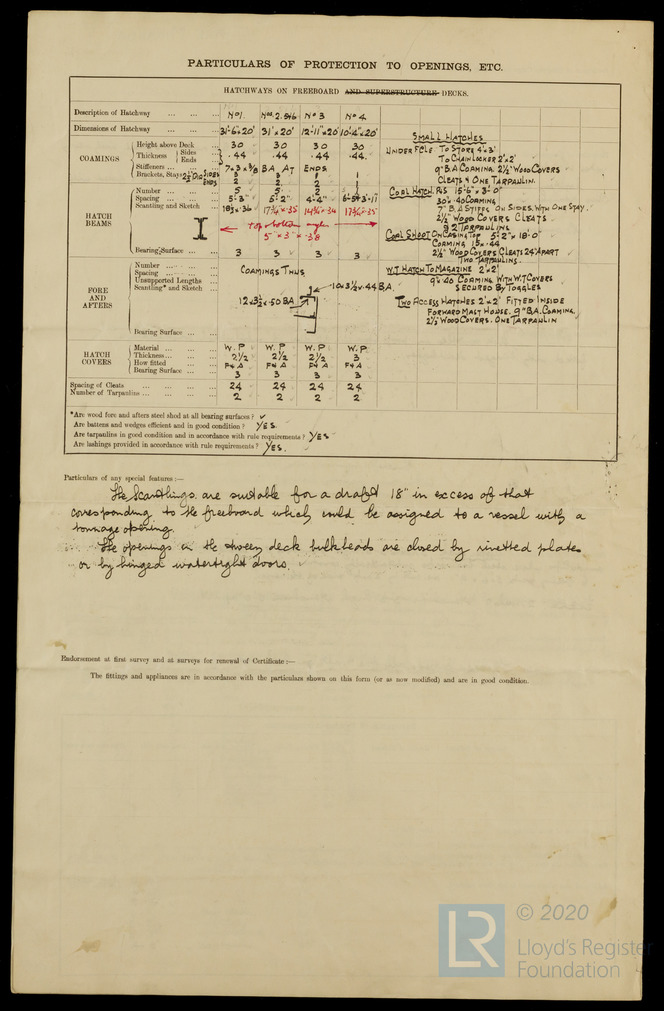 PARTICULARS OF PROTECTION TO OPENINGS, ETC.
HATCHWAYS ON FREEBOARD AND SUPERSTRUCTURE DECKS.
Description of Hatchway ... ... ... Nº1. Nos. 2.5&6 Nº 3 Nº 4.
Dimensions of Hatchway ... ... ... 31'-6"x20' 31'x20' 12'-11"x20' 10'-4"x20'
COAMINGS
Height above Deck ... 30 30 30 30
Thickness Sides ... .44 .44 .44 .44
Ends ...
Stiffeners ... ... 7x3x3/8 BA AT ENDS
Brackets, Stays SIDES
ENDS 2 2 2
HATCH BEAMS
Number ... ... ... 5 5 2 1
Spacing ... ... ... 5'-3" 5'-2" 4'-4"
Scantling and Sketch
top & bottom angles
5" x 3" x .38
Bearing Surface ... ... 3 3 3 3
FORE AND AFTERS
Number ... ... ... COAMINGS THUS
Spacing ... ... ...
Unsupported Lengths ...
Scantling* and Sketch ... 10x3½x.44 BA.
12x3½x.50 BA
Bearing Surface ... ...
HATCH COVERS
Material ... ... ... W.P W.P W.P W.P
Thickness... ... ... 2½ 2½ 2½ 3
How fitted ... ... F&A F&A F&A F&A
Bearing Surface ... ... 3 3 3 3
Spacing of Cleats ... ... ... ... 24 24 24 24
Number of Tarpaulins ... ... ... ... 2 2 2 2
SMALL HATCHES
UNDER FCLE TO STORE 4'x3'
TO CHAIN LOCKER 2'x2'
9" B.A COAMING. 2½" WOOD COVERS
CLEATS & ONE TARPAULIN.
COAL HATCH. P&S 15'-6" x 3'-0"
30"x.40 COAMING
7" B.A STIFFS ON SIDES. WITH ONE STAY.
2½" WOOD COVERS CLEATS
& 2 TARPAULINS
COAL SHOOT ON CASING TOP 5'-2" x 18'-0"
COAMING 15x.44
2½" WOOD COVERS CLEATS 24" APART
TWO TARPAULINS.
W.T HATCH TO MAGAZINE 2'x2'
9"x.40 COAMING WITH W.T COVERS
SECURED BY TOGGLES
TWO ACCESS HATCHES 2'x2' FITTED INSIDE
FORWARD MAST HOUSE. 9" B.A. COAMING.
2½" WOOD COVERS. ONE TARPAULIN
*Are wood fore and afters steel shod at all bearing surfaces? ✓
Are battens and wedges efficient and in good condition? YES.
Are tarpaulins in good condition and in accordance with rule requirements? YES
Are lashings provided in accordance with rule requirements? YES.
Particulars of any special features:—
The Scantlings are suitable for a draft 18" in excess of that
corresponding to the freeboard which could be assigned to a vessel with a
tonnage opening.
The openings in the deck bulkheads are closed by rivetted plates
or by hinged watertight doors.
Endorsement at first survey and at surveys for renewal of Certificate:—
The fittings and appliances are in accordance with the particulars shown on this form (or as now modified) and are in good condition.
LR
© 2020
Lloyd's Register
Foundation